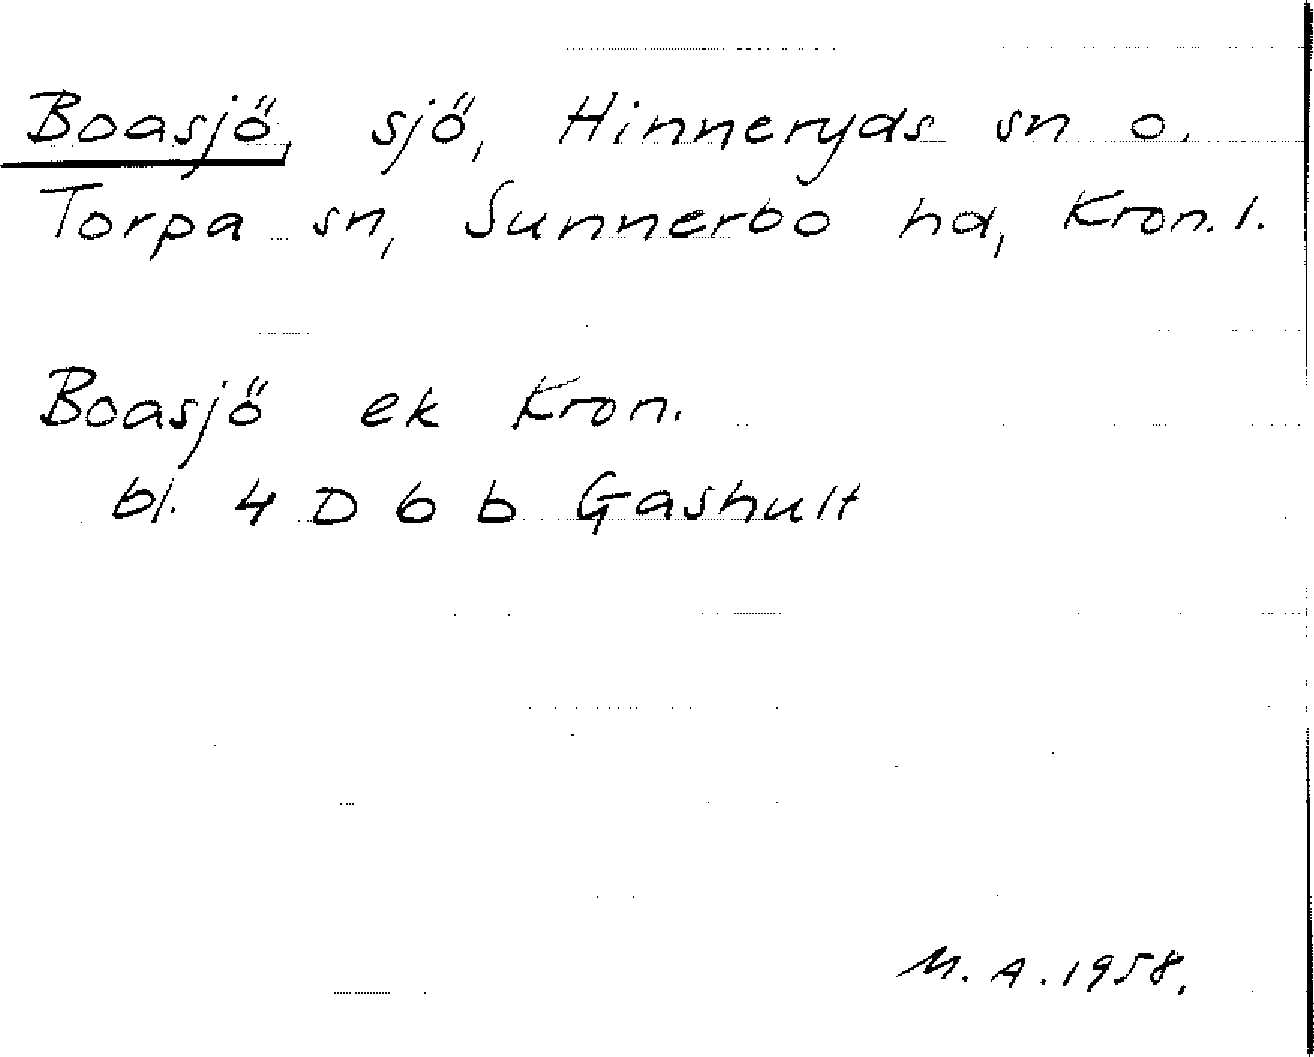 Boasjö, sjö, Hinneryds sn o.
Torpa sn, Sunnerbo hd, Kron. l.
Boasjö ek Kron.
bl. 4 D 6 b Gashult
M. A. 1958.